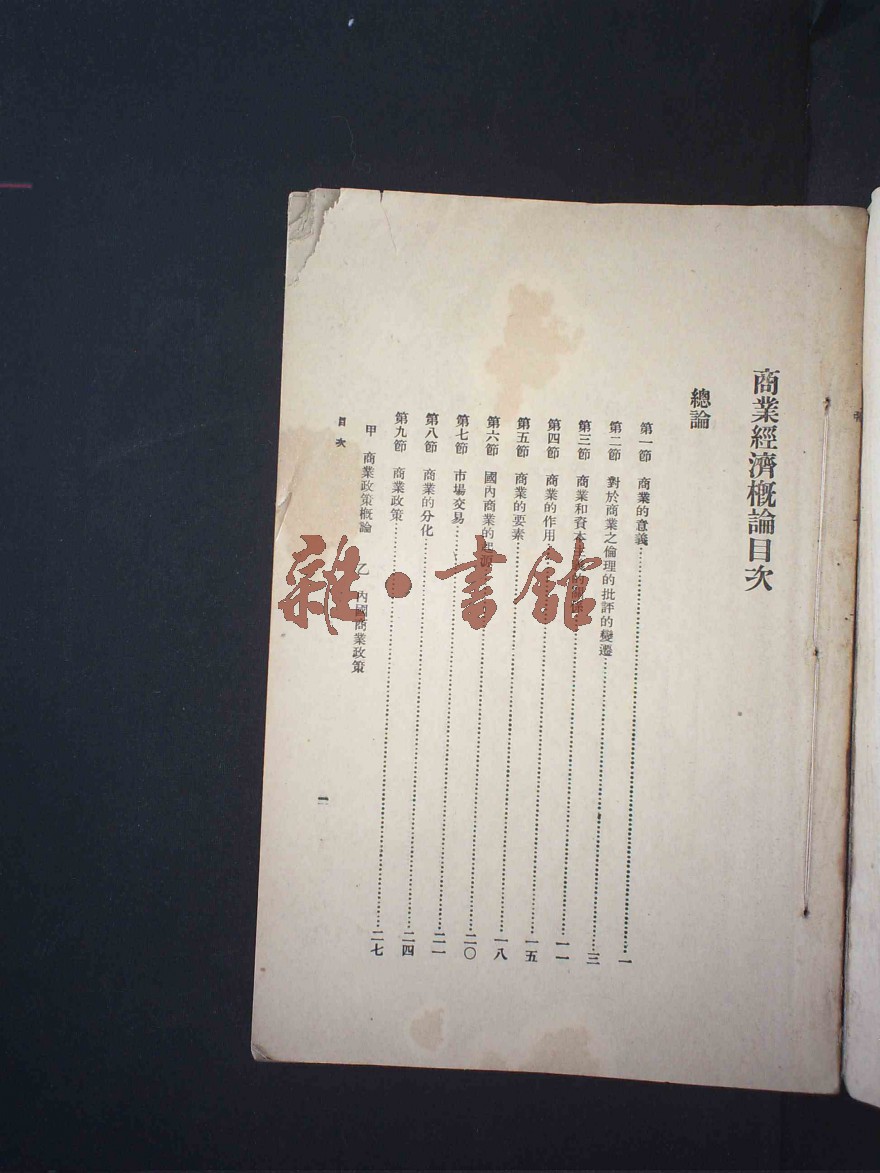 商業經濟概論目次
總論
第一節 商業的意義……………一
第二節 對於商業之倫理的批評的變遷……………三
第三節 商業和資本主義的關係……………一一
第四節 商業的作用……………一五
第五節 商業的要素……………一八
第六節 國內商業的起源……………二〇
第七節 市場交易……………二一
第八節 商業的分化……………二四
第九節 商業政策……………二七
甲 商業政策概論 乙 內國商業政策
目次
一
雜·書館